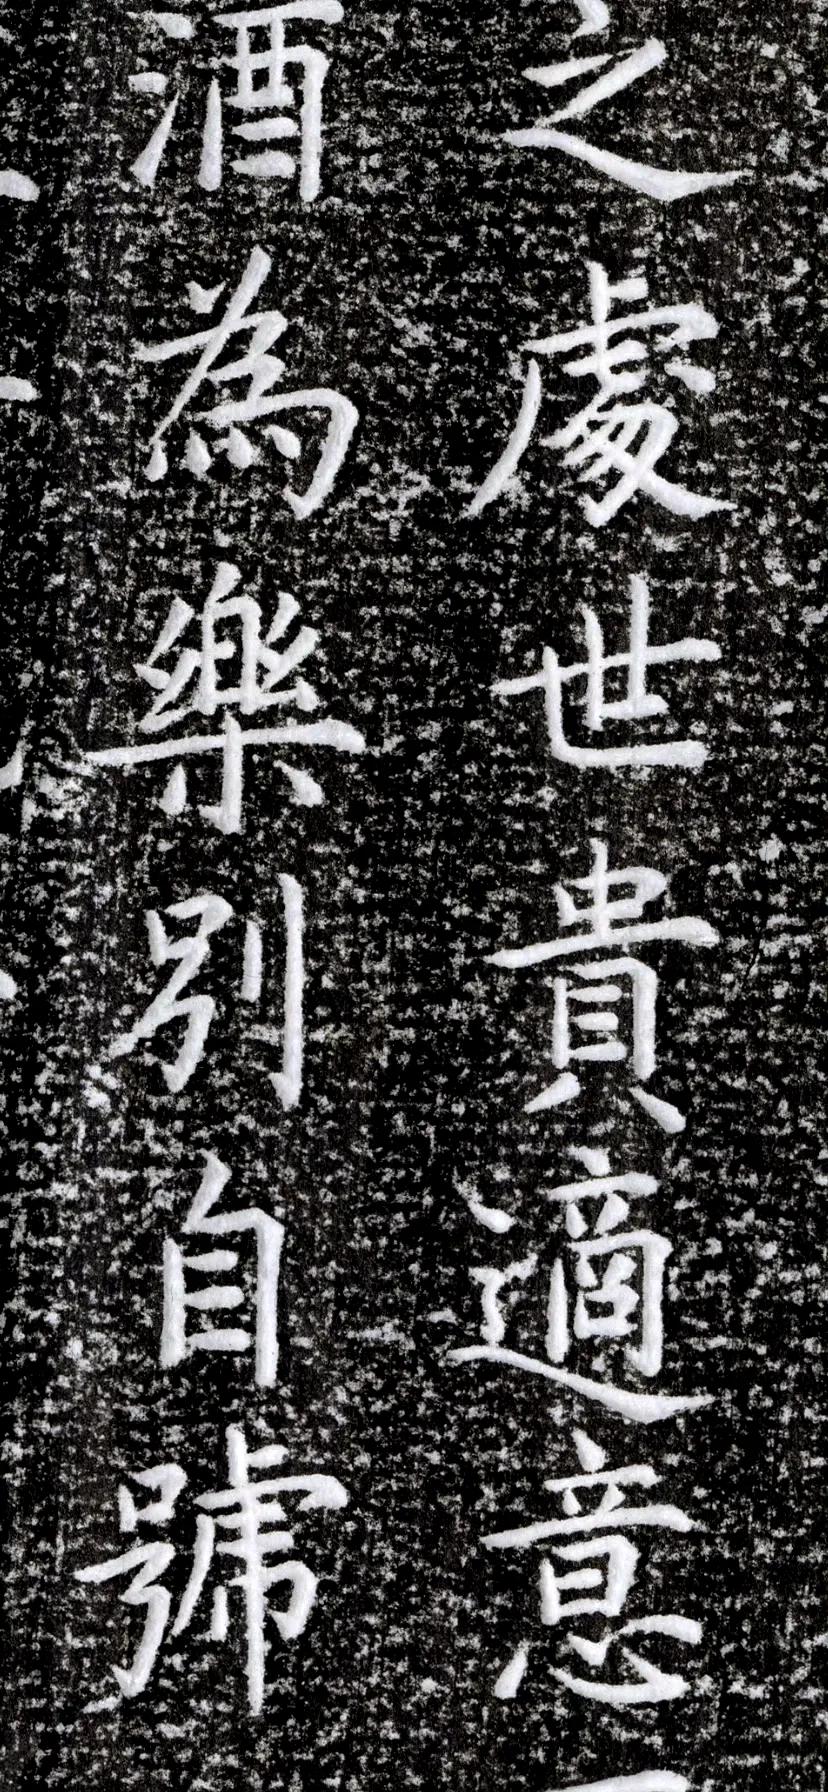 之處世貴適意
酒為樂別自號